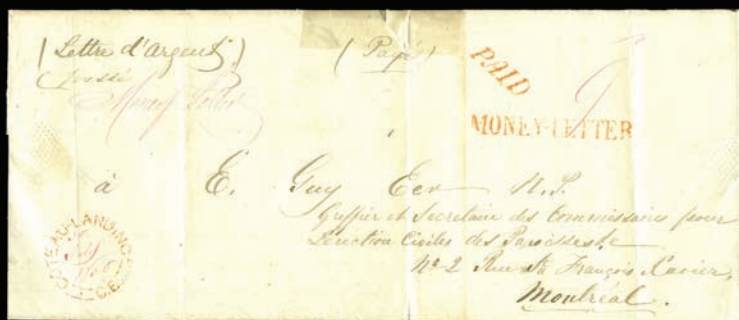 (Lettre d'argent)
(Payé)
Money Letter
PAID
MONEY-LETTER
à E. Guy Ecr N.P.
Greffier et Secretaire des Commissaires pour
l'erection Civiles des Paroisses &c
No 2 Rue St François Xavier,
Montréal.
COTEAU-LANDING
C.E.